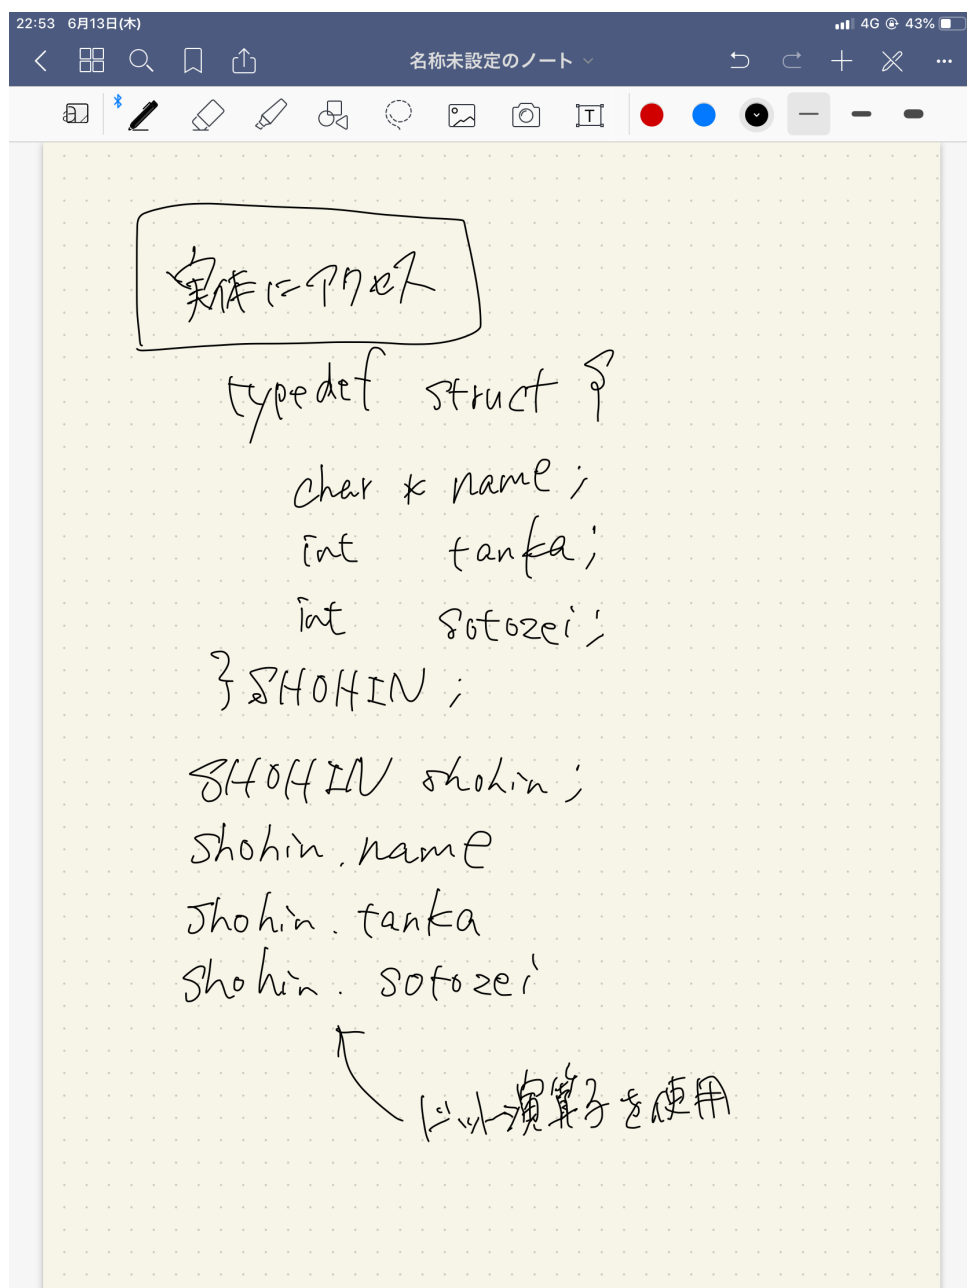 22:53 6月13日(木) 4G 43%
名称未設定のノート
a T
実体にアクセス
typedef struct {
char * name ;
int tanka ;
int sotozei ;
} SHOHIN ;
SHOHIN shohin ;
shohin . name
shohin . tanka
shohin . sotozei
ドット演算子を使用